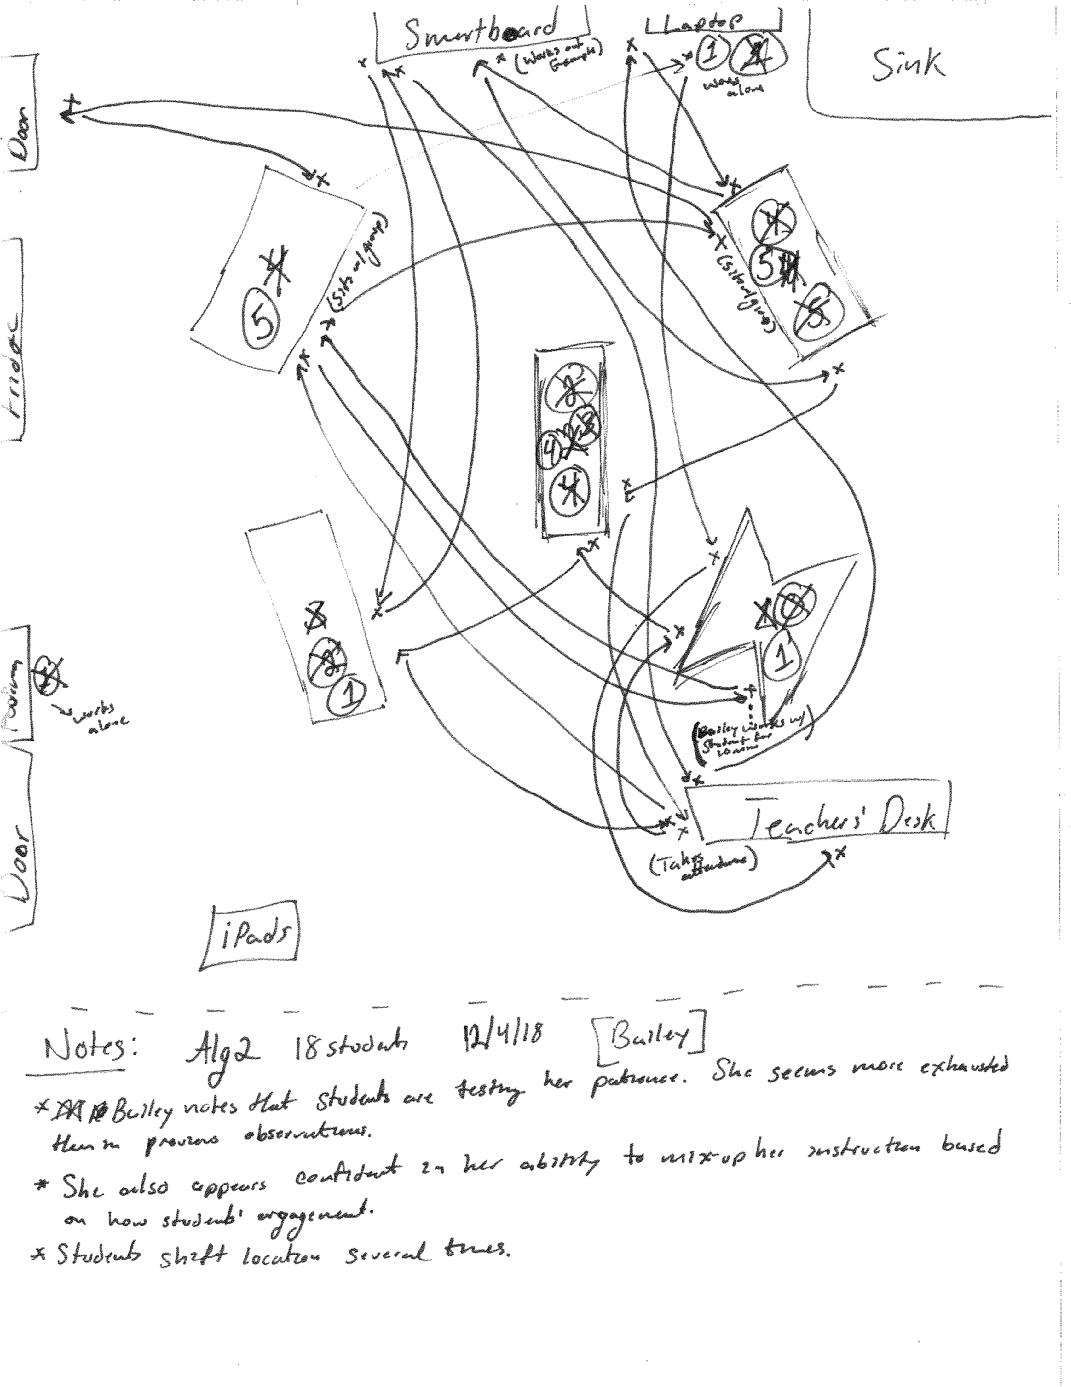 Smartboard
(Works out
Example)
Laptop
1
works
alone
Sink
Door
Fridge
(Sits w/ group)
5
(Sits w/ group)
5
4
1
1
works
alone
(Bailey works w/
Student for
10 min)
Teachers' Desk
(Takes
attendance)
Door
iPads
Notes: Alg2 18 students 12/4/18 [Bailey]
* Bailey notes that students are testing her patience. She seems more exhausted
than in previous observations.
* She also appears confident in her ability to mix-up her instruction based
on how students' engagement.
* Students shift location several times.